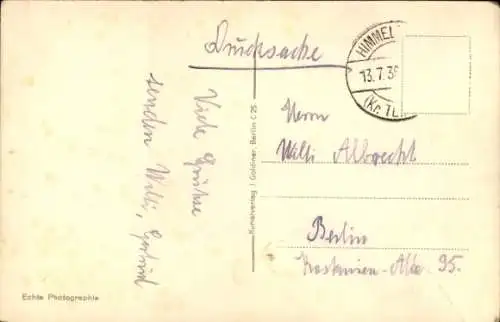 Drucksache
HIMMEL
13.7.39
(Kr. TE
Viele Grüsse
senden Willi, Gertrud
Herrn
Willi Albrecht
Berlin
Kastanien-Alle 95.
Kunstverlag J. Goldiner, Berlin C 25
Echte Photographie